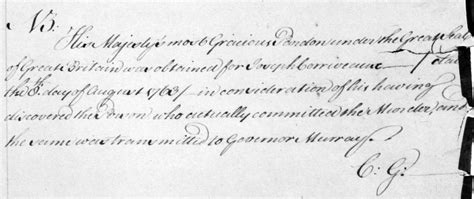 NB:
His Majesty's most Gracious Pardon under the Great Seal
of Great Britain was obtained for Joseph Corriveaux
the 8th day of August 1763 in consideration of his having
discovered the Person who actually committed the Murder, and
the same was transmitted to Governor Murray.
C: G: